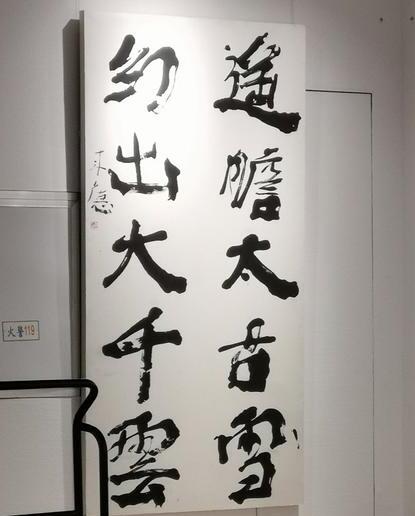 遥瞻太古雪
幻出大千雲
火警119